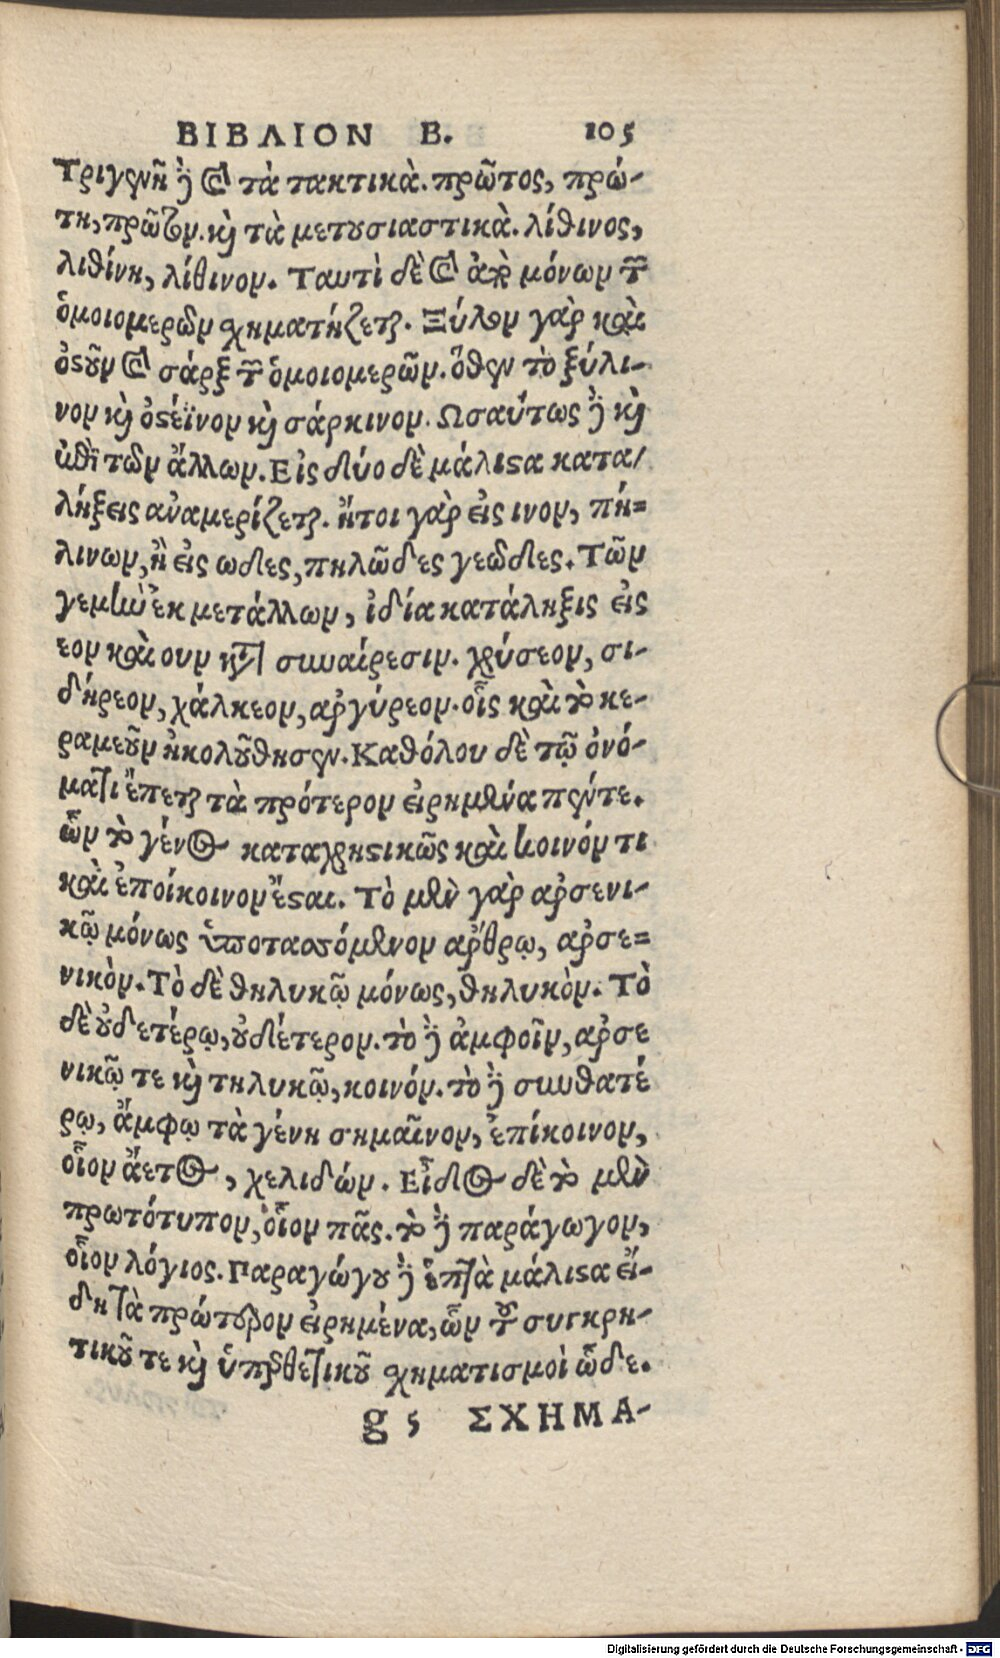 ΒΙΒΛΙΟΝ Β. 105
Τριγενῆ δὲ καὶ τὰ τακτικὰ. πρῶτος, πρώ-
τη, πρῶτον. καὶ τὰ μετουσιαστικὰ. λίθινος,
λιθίνη, λίθινον. Ταυτὶ δὲ καὶ ἀπὸ μόνων τῶν
ὁμοιομερῶν σχηματίζεται. Ξύλον γὰρ καὶ
ὀστοῦν καὶ σάρξ τῶν ὁμοιομερῶν. ὅθεν τὸ ξύλι-
νον καὶ ὀστέϊνον καὶ σάρκινον. Ωσαύτως δὲ καὶ
ἐπὶ τῶν ἄλλων. Εἰς δύο δὲ μάλιστα κατα/
λήξεις ἀναμερίζεται. ἤτοι γὰρ εἰς ινον, πή=
λινων, ἢ εἰς ωδες, πηλῶδες γεῶδες. Τῶν
γεμὴν ἐκ μετάλλων, ἰδία κατάληξις εἰς
εον καὶ ουν κατὰ συναίρεσιν. χρύσεον, σι-
δήρεον, χάλκεον, ἀργύρεον. οἷς καὶ τὸ κε-
ραμεοῦν ἠκολούθησεν. Καθόλου δὲ τῷ ὀνό-
ματι ἕπεται τὰ πρότερον εἰρημένα πέντε.
ὧν τὸ γένος καταχρηστικῶς καὶ κοινόν τι
καὶ ἐποίκοινον ἔσται. Τὸ μὲν γὰρ ἀρσενι-
κῷ μόνως ὑποτασσόμενον ἄρθρῳ, ἀρσε=
νικὸν. Τὸ δὲ θηλυκῷ μόνως, θηλυκὸν. Τὸ
δὲ οὐδετέρῳ, οὐδέτερον. τὸ δὲ ἀμφοῖν, ἀρσε
νικῷ τε καὶ τηλυκῷ, κοινόν. τὸ δὲ συνθατέ
ρῳ, ἄμφω τὰ γένη σημαῖνον, ἐπίκοινον,
οἷον ἄετος, χελιδών. Εἶδος δὲ τὸ μὲν
πρωτότυπον, οἷον πᾶς. τὸ δὲ παράγωγον,
οἷον λόγιος. Παραγώγου δὲ ἑπτὰ μάλιστα εἴ-
δη τὰ πρώτερον εἰρημένα, ὧν τοῦ συγκρη-
τικοῦ τε καὶ ὑπερθετικοῦ σχηματισμοὶ ὧδε.
g 5 ΣΧΗΜΑ-
Digitalisierung gefördert durch die Deutsche Forschungsgemeinschaft - DFG